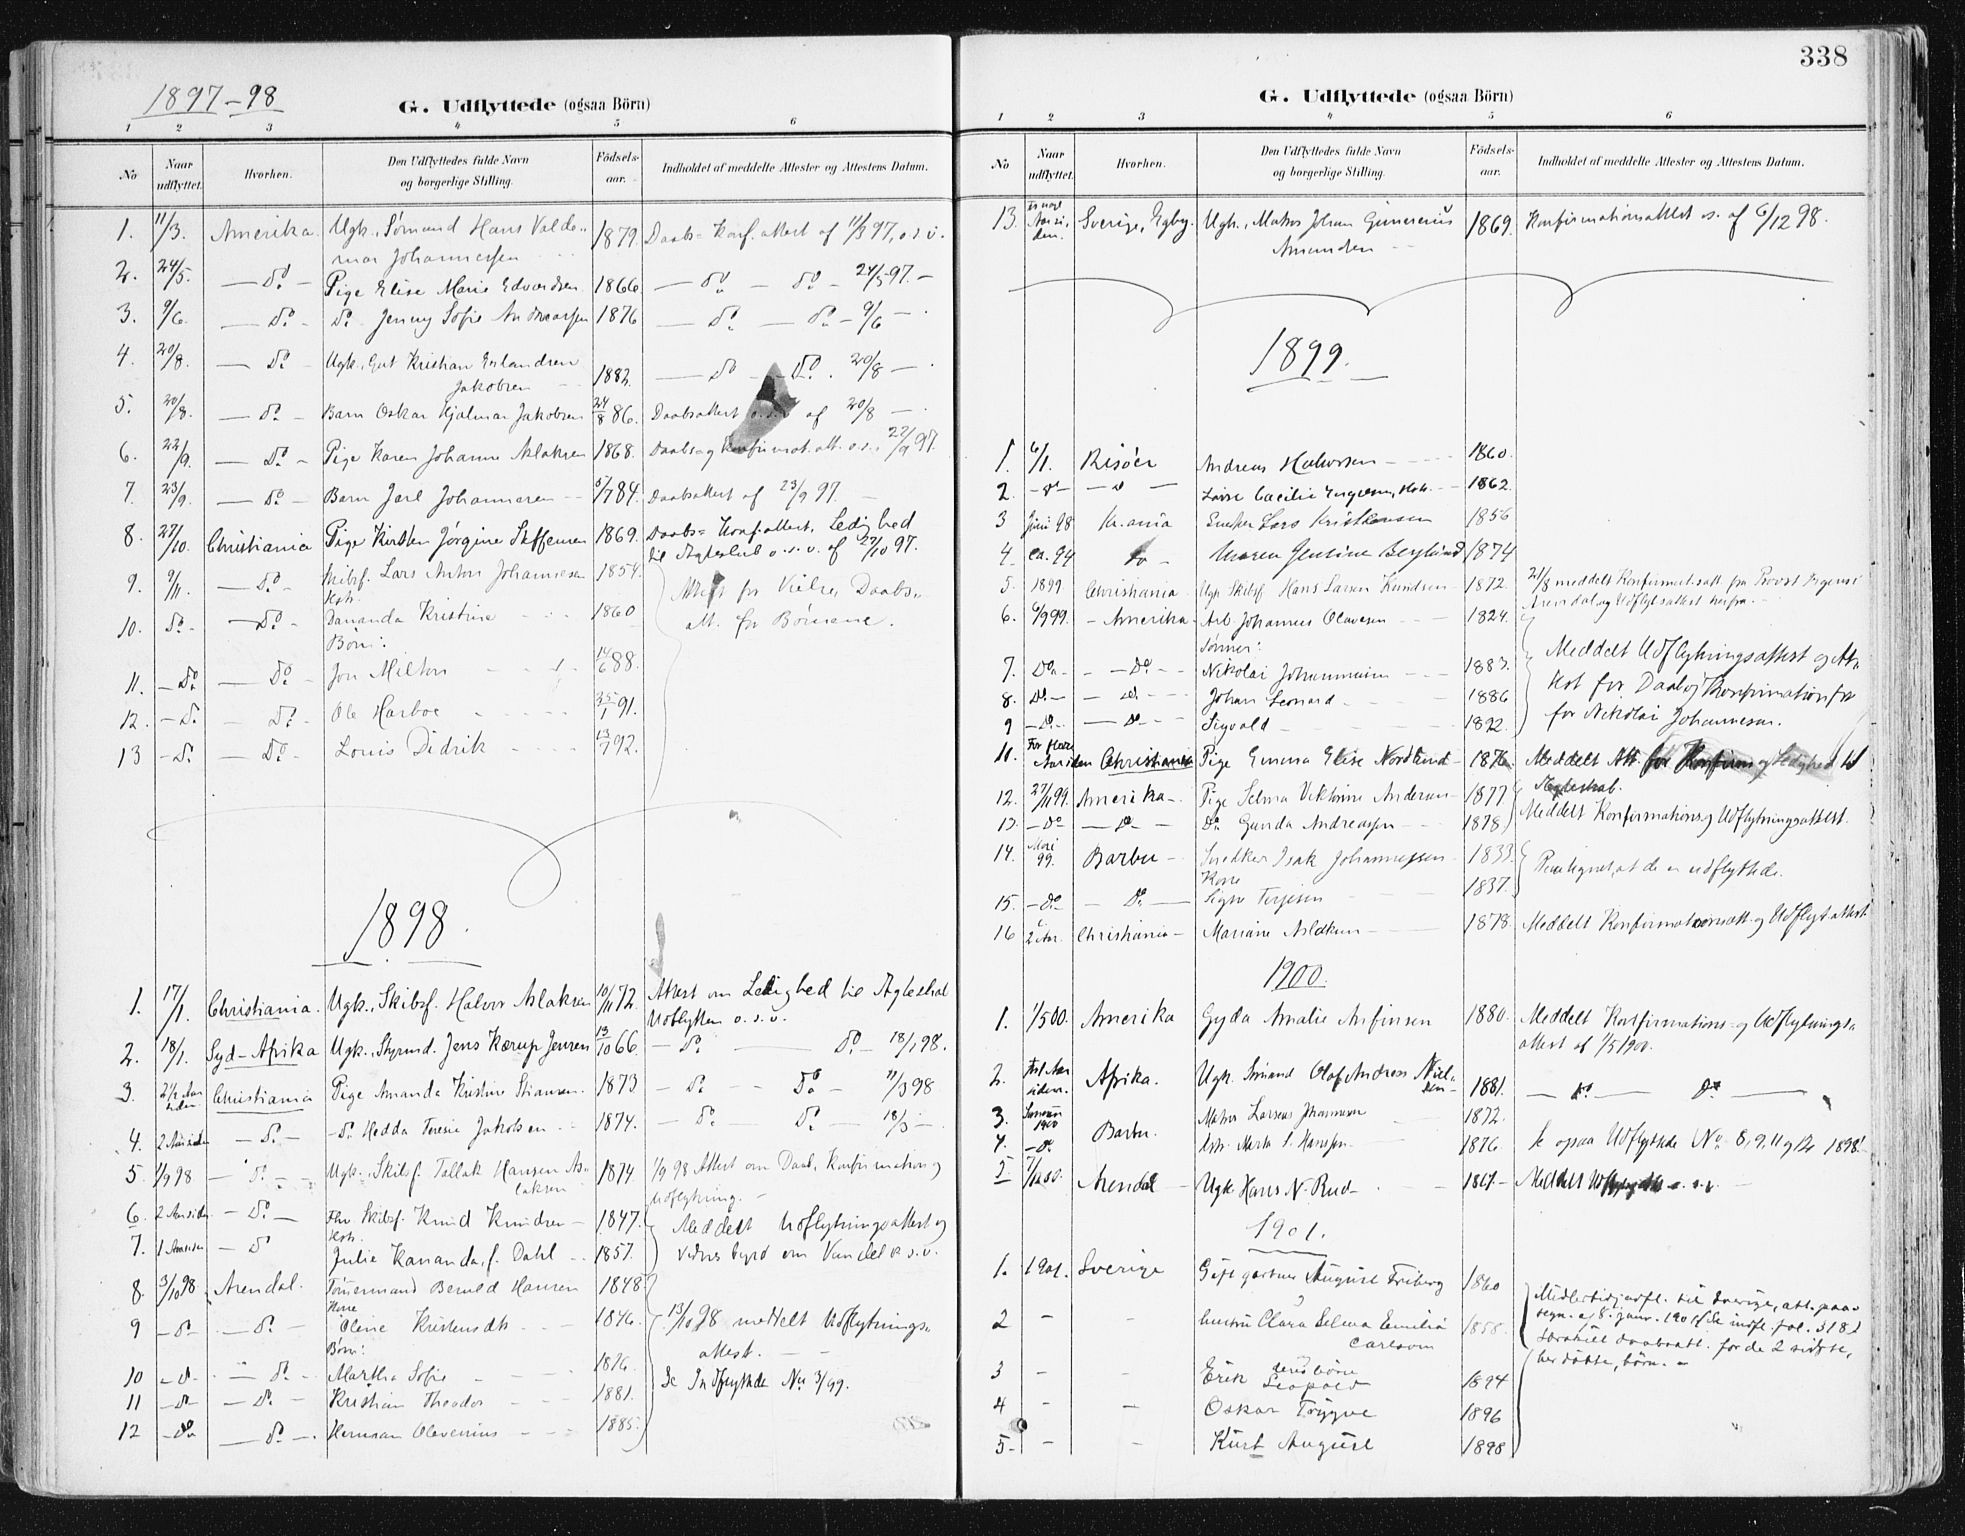 1897-98
G. Udflyttede (ogsaa Börn)
1 2 3 4 5 6
No Naar udflyttet. Hvorhen. Den Udflyttedes fulde Navn og borgerlige Stilling. Födsels-aar. Indholdet af meddelte Attester og Attestens Datum.
1. 11/3. Amerika. Ugk., Sömand Hans Valde-
mar Johannessen 1879. Daabs- Konf. attest af 11/3 97, o.s.v.
2. 24/5. — Do — Pige Elise Marie Edvardsen 1866. — Do — Do — 24/5 97. —
3. 9/6. — Do — Do Jenny Sofie Andreassen 1876 — Do — Do — 9/6 — .
4. 20/8. — Do — Ugk., Gut Kristian Erlandsen
Jakobsen 1882. — Do — Do. 20/8 — .
5. 20/8. — Do — Barn Oskar Hjalmar Jakobsen 24/8 86. Daabsattest o.s.v. af 20/8 — .
6. 22/9. — Do — Pige Karen Johanne Aslaksen 1868. Daabs og Konfirmat. att. o.s.v. 22/9 97.
7. 23/9. — Do — Barn Jarl Johannesen 5/7 84. Daabsattest af 23/9 97. —
8. 27/10. Christiania Pige Kirsten Jörgine Steffensen 1869. Daabs- Konf. attest, Ledighed
til Ægteskab o.s.v. af 27/10 97.
9. 9/11. — Do — Skibsf. Lars Anton Johannesen 1854. Attest for Vielse, Daabs-
Hstr.
10. Do — Do — Dananda Kristine 1860 att. for Börnene.
Börn:
11. — Do — Do — Jon Milton 14/6 88.
12. — Do — Do — Ole Harboe 25/1 91.
13 — Do — Do — Louis Didrik 13/7 92.
1898.
1. 17/1. Christiania. Ugk., Skibsf. Halvor Aslaksen 10/11 72. Attest om Ledighed til Ægteskab
Udflytten o.s.v.
2. 18/1. Syd-Afrika Ugk., Styrmd. Jens Kærup Jensen 13/10 66. — Do — Do — 18/1 98.
3. 2 1/2 Aar siden Christiania Pige Amanda Kristine Stiansen. 1873 — Do — Do — 11/3 98
4. 2 Aar siden — Do — — Do Hedda Teresie Jakobsen 1874. — Do — Do — 18/3 — .
5. 1/9 98 — Do — Ugk., Skibsf. Tallak Hansen As-
laksen 1874 1/9 98 Attest om Daab, Konfirmation og
Udflytning. —
6. 2 Aar siden — Do — Fhv. Skibsf. Knud Knudsen 1847. Meddelt Udflytningsattest og
Hstr.
7. 1 Aar siden — Do Julie Kananda, f. Dahl 1857. Vidnesbyrd om Vandel o.s.v.
8. 3/10 98 Arendal. Tömmermand Bernld Hansen 1848
Kone
9 — Do — — Do — Oline Kristensdtr. 1846. 13/10 98 meddelt Udflytnings-
Börn: attest. — —
10 — Do — Do — Martha Sofie 1876. Se Indflyttede No 3/99.
11 — Do — — Do — Kristian Theodor 1881.
12 — Do — Do — Herman Olevinius 1885.
338
G. Udflyttede (ogsaa Börn)
1 2 3 4 5 6
No Naar udflyttet. Hvorhen. Den Udflyttedes fulde Navn og borgerlige Stilling. Födsels-aar. Indholdet af meddelte Attester og Attestens Datum.
13. Aar siden. Sverige, Ugk., Matros Johan Gunerius
Amundsen 1869. Konfirmationsattest o.s. af 6/12 98.
1899.
1. 6/1. Risöer Andreas Halvorsen 1860.
2. — Do — — Do — Lovise Cæcilie 1862.
3 Juni 98 Kr.ania Snedker Lars Kristensen 1856
4. ca. 94 Do — Maren Gustine Berglund 1874
5. 1899 Christiania. Ugk. Skibsf. Hans Larsen Knudsen 1872. 21/8 meddelt Konfirmat.satt. fra Provst
Arendal og Udflytn.attest herfra. —
6. 6/9 99. — Amerika. Arb. Johannes Olavesen 1824.
Sönner:
7. Do — — Do — Nikolai Johannesen 1883. Meddelt Udflytningsattest og At-
8. Do — — Do — Johan Leonard 1886 test for Daab og Konfirmation for
9 — Do — — Do — Sigvald 1892. for Nikolai Johannesen.
11. For flere Aar siden Christiania Pige Emma Elise Nordlund 1876 Meddelt Att. for Konfirm. og Ledighed til
Ægteskab.
12. 27/11 99. Amerika. Pige Selma Viktorine Andersen 1877
13. — Do — — Do — Do Gunda Andreassen 1878 Meddelt Konfirmations og Udflytningsattest.
14. Mai 99. Barbu — Snedker Isak Johannessen 1833. at de er udflyttede.
Kone
15. — Do — — Do — Signe Terjesen 1837.
16 i 2 Aar. Christiania — Mariane Aslaksen 1878. Meddelt Konfirmationsatt. og Udflyt. attest
1900.
1. 1/5 00. Amerika Gyda Amalie Arnfinsen 1880. Meddelt Konfirmations- og Udflytnings-
attest af 1/5 1900.
2. Aar siden. Afrika. Ugk. Sömand Olaf Andreas Niel-
sen 1881. — Do — Do —
3. 1900 Barbu. Matros Larsens Johannesen 1872.
4. — Do Marta S. Hansen 1876. Se ogsaa Udflyttede No 8, 9, 11 og 12 1898.
5. Arendal — Ugk Hans N. Rud — 1867 — Meddelt o.s.v. —
1901.
1. 1901. Sverige Gift gartner August Friberg 1860
2 hustru Clara Selma Emilia
Carlsson 1858. Midlertidig udfl. til Sverige, att. paa-
tegn. 8. janr. 1901. Se indfl. fol. 318.
3 — — deres börn
Erik Leopold 1894 Særskilt daabsatt. for de 2 sidste,
her döbte, börn. —
4 — — Oskar Trygve 1896
5 — — Kurt August 1898